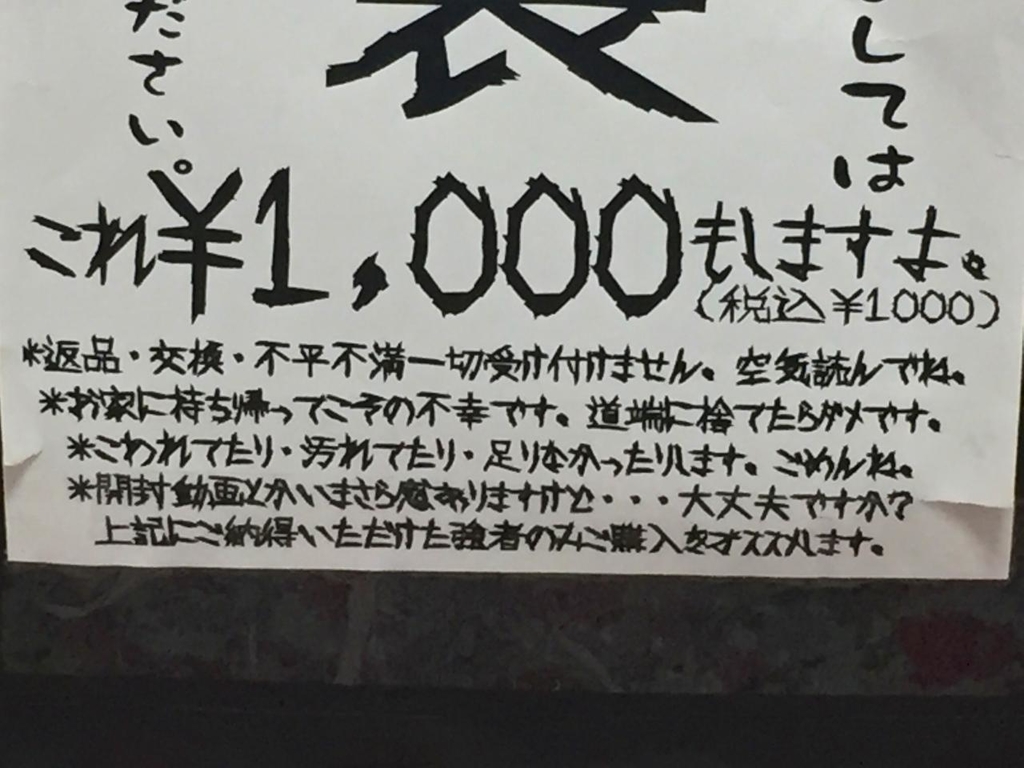 しては
袋
ださい。
これ¥1,000もしますよ。
(税込¥1000)
*返品・交換・不平不満一切受け付けません。空気読んでね。
*お家に持ち帰ってこその不幸です。道端に捨てたらダメです。
*こわれてたり・汚れてたり・足りなかったりします。ごめんね。
*開封動画とかいまさら感ありますけど・・・大丈夫ですか?
上記にご納得いただけた強者のみご購入をオススメします。